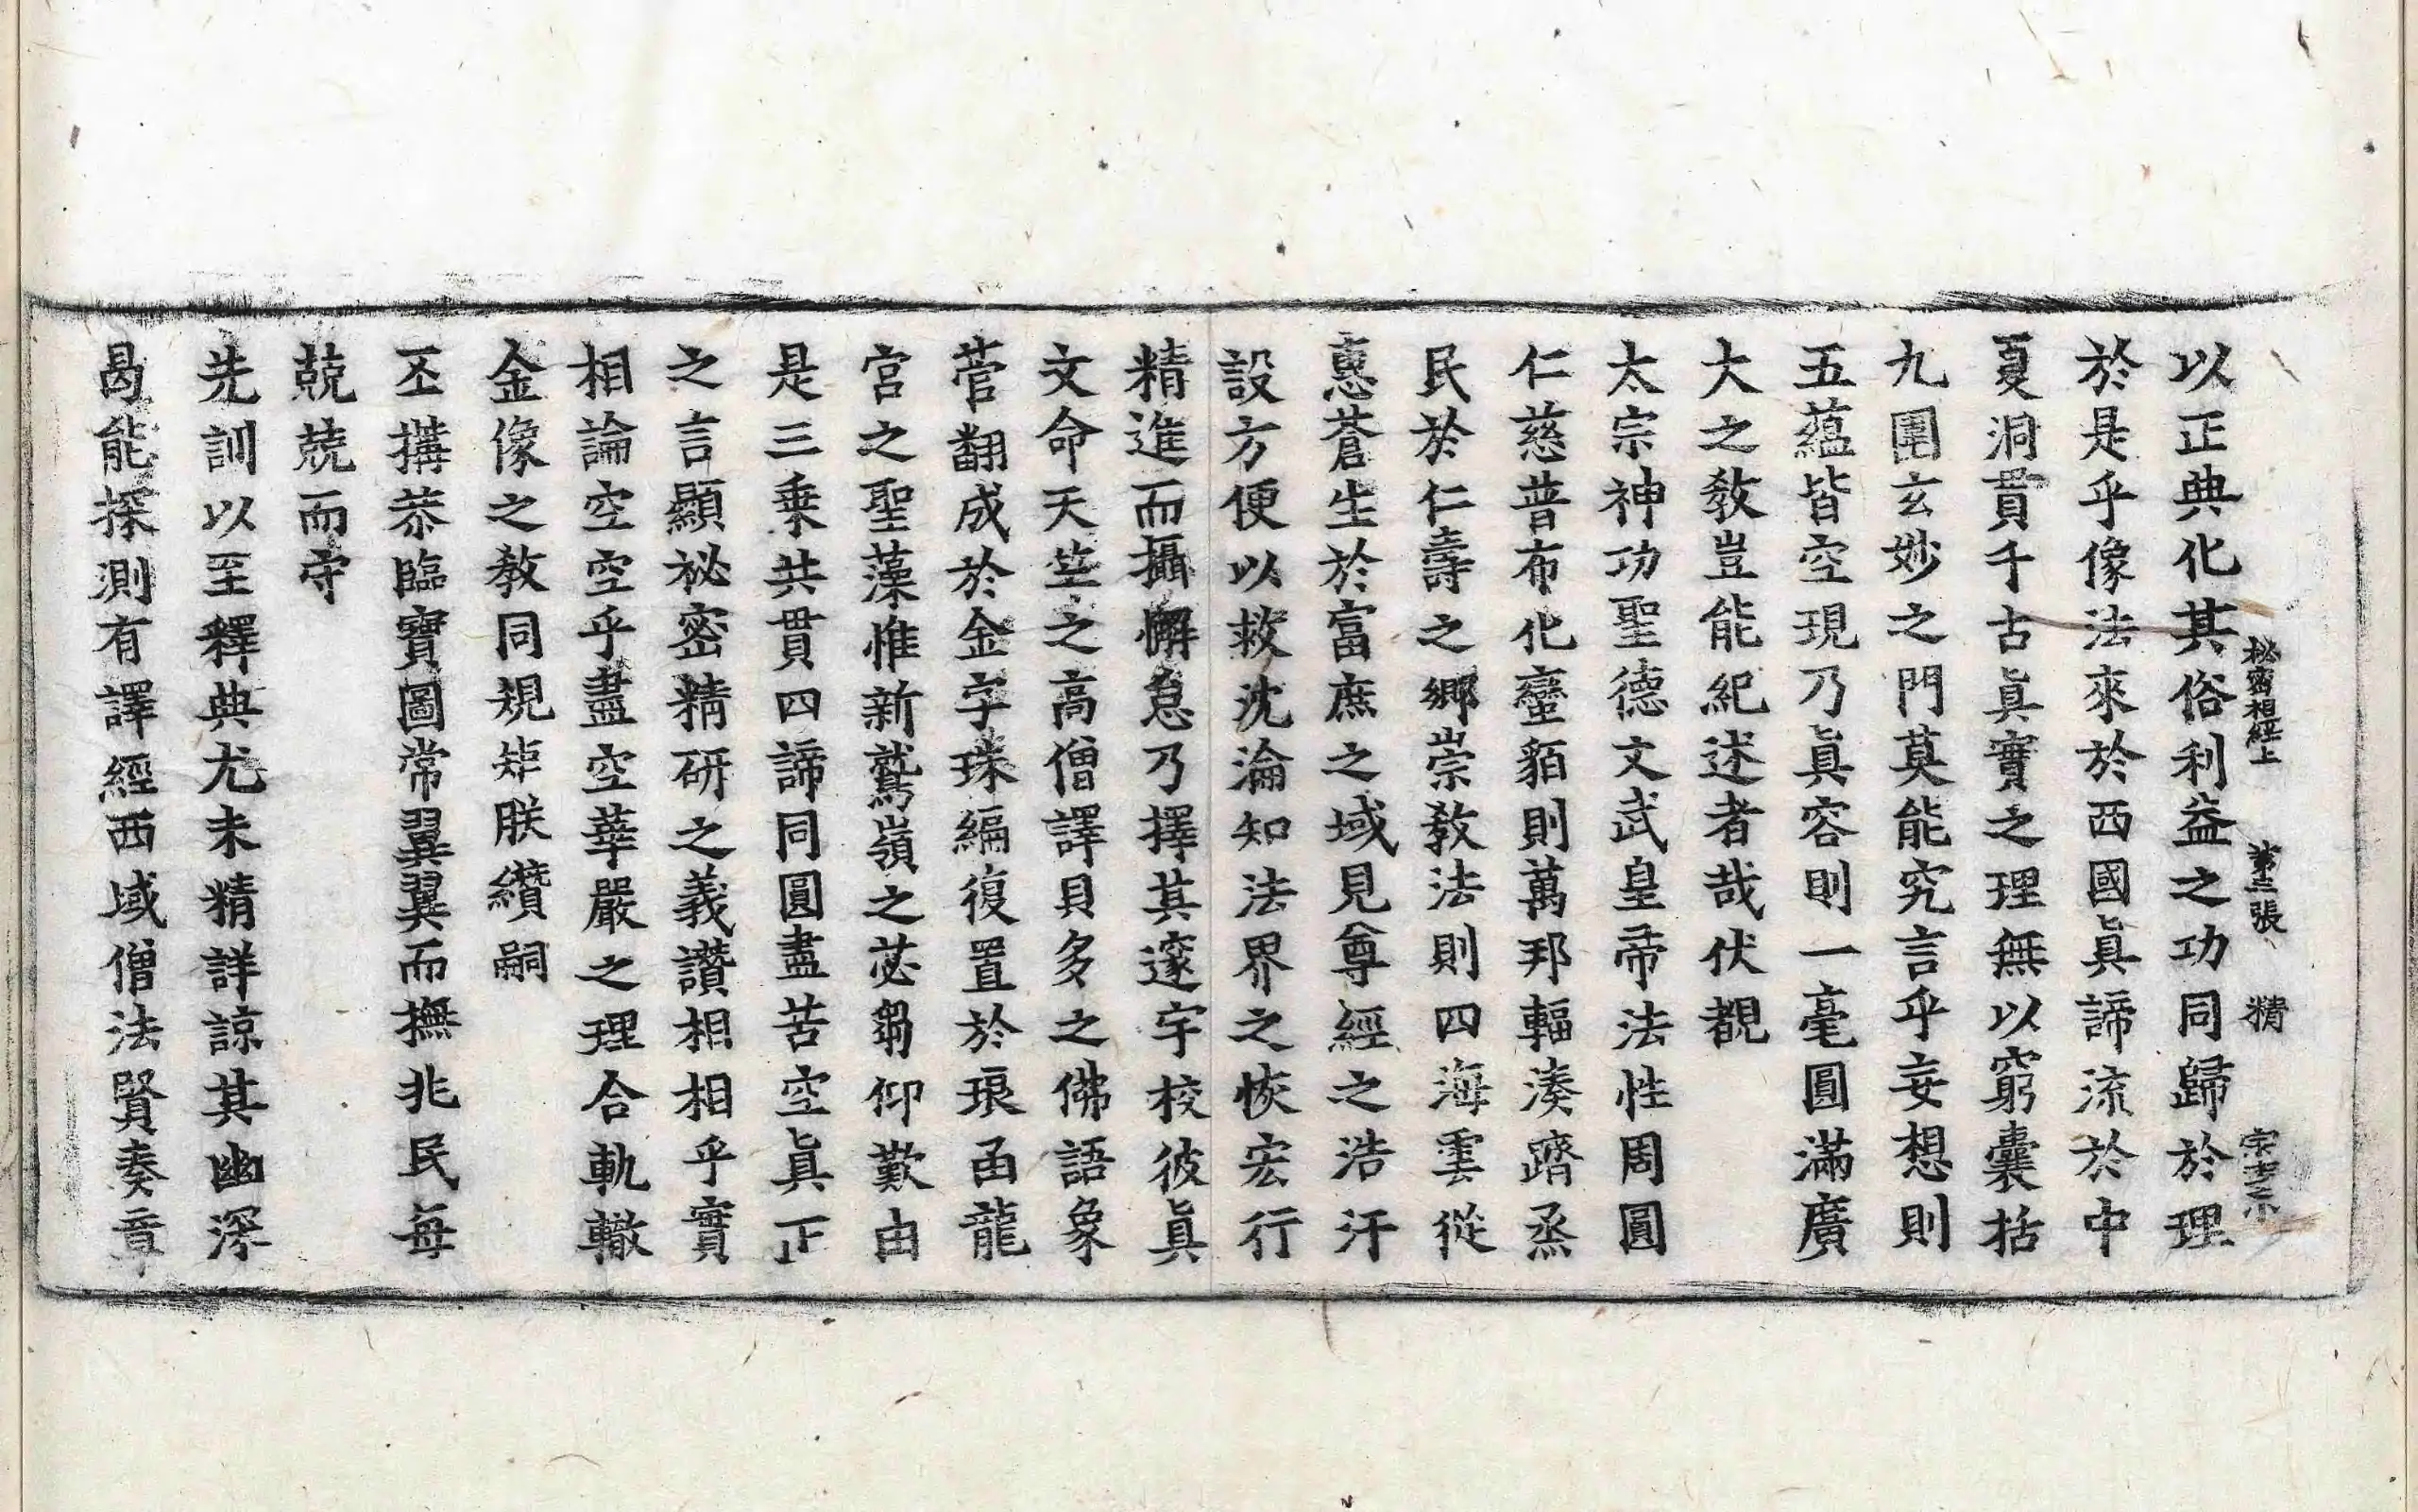 秘密相經上 第三張 精
以正典化其俗利益之功同歸於理
於是乎像法來於西國眞諦流於中
夏洞貫千古眞實之理無以窮囊括
九圍玄妙之門莫能究言乎妄想則
五蘊皆空現乃眞容則一毫圓滿廣
大之敎豈能紀述者哉伏覩
太宗神功聖德文武皇帝法性周圓
仁慈普布化蠻貊則萬邦輻湊躋烝
民於仁壽之鄕崇敎法則四海雲從
惠蒼生於富庶之域見尊經之浩汗
設方便以救沈淪知法界之恢宏行
精進而攝懈怠乃擇其邃宇校彼眞
文命天竺之高僧譯貝多之佛語象
菅翻成於金字珠編復置於琅函龍
宮之聖藻惟新鷲嶺之苾蒭仰歎由
是三乗共貫四諦同圓盡苦空眞正
之言顯祕密精研之義讚相相乎實
相論空空乎盡空莘嚴之理合軌轍
金像之敎同規矩朕纘嗣
丕搆恭臨寶圖常翼翼而撫兆民每
兢兢而守
先訓以至釋典尤未精詳諒其幽深
曷能探測有譯經西域僧法賢奏章